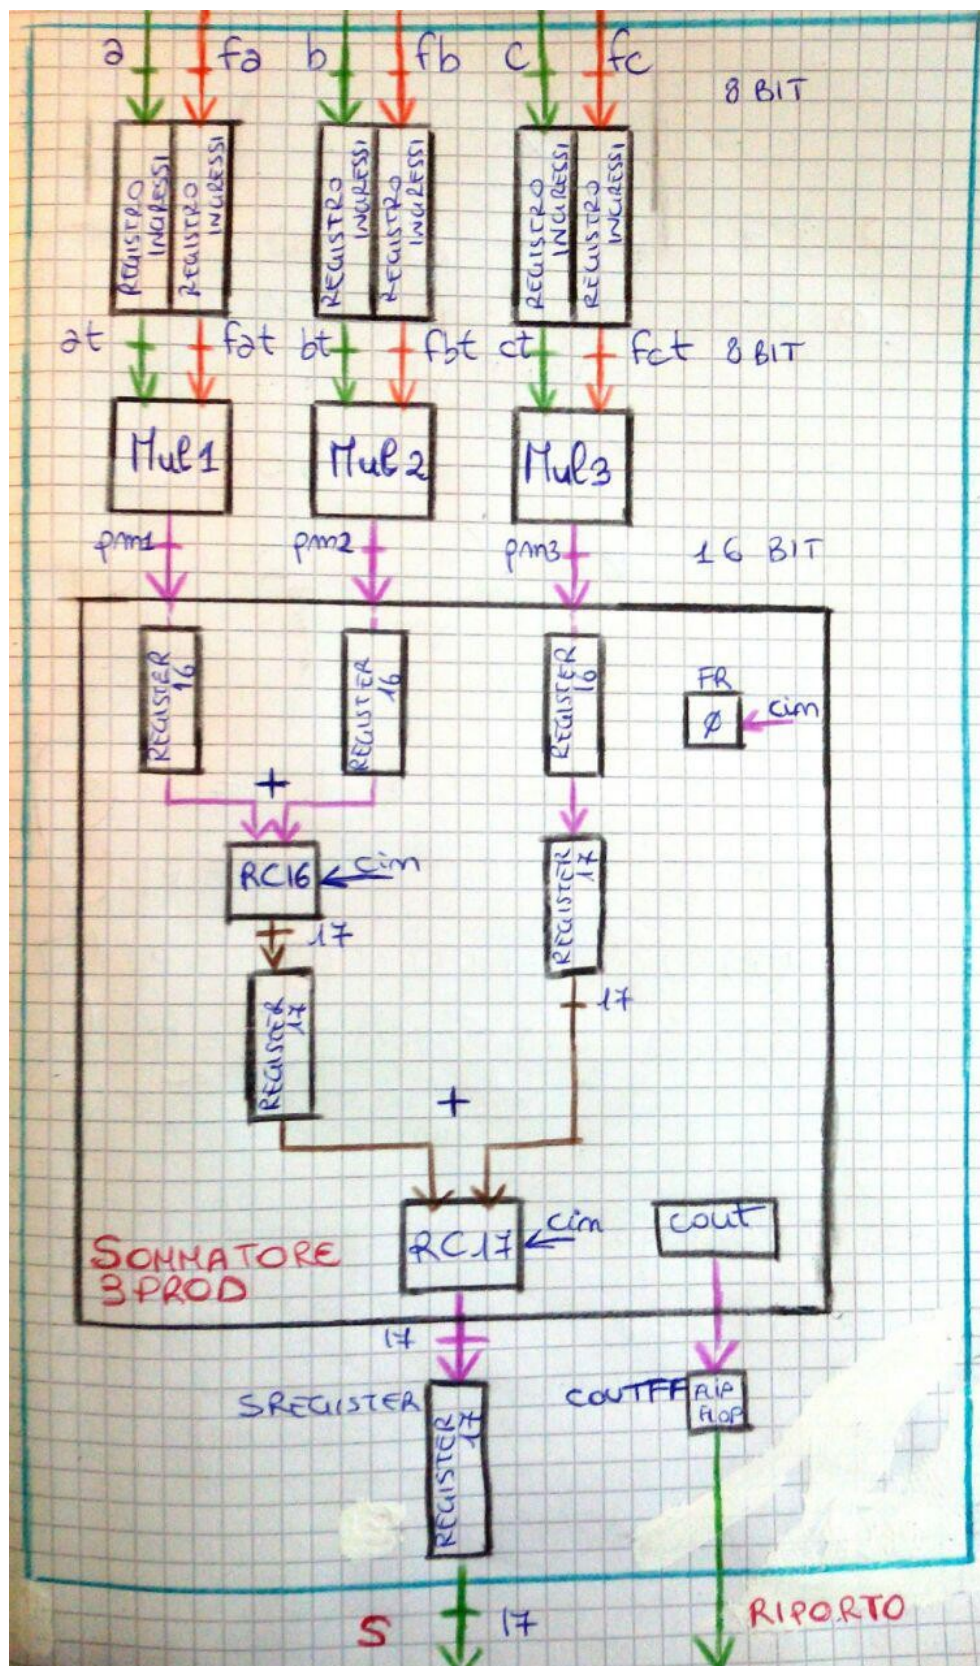 a fa b fb c fc
8 BIT
REGISTRO INGRESSI
REGISTRO INGRESSI
REGISTRO INGRESSI
REGISTRO INGRESSI
REGISTRO INGRESSI
REGISTRO INGRESSI
at fat bt fbt ct fct 8 BIT
Mul1 Mul2 Mul3
pm1 pm2 pm3 16 BIT
REGISTER 16
REGISTER 16
REGISTER 16
FR
Ø cin
+
RC16 cin
REGISTER 17
17
17
REGISTER 17
+
RC17 cin
cout
SOMMATORE
3PROD
17
SREGISTER
REGISTER 17
COUTFF
FLIP
FLOP
S 17
RIPORTO